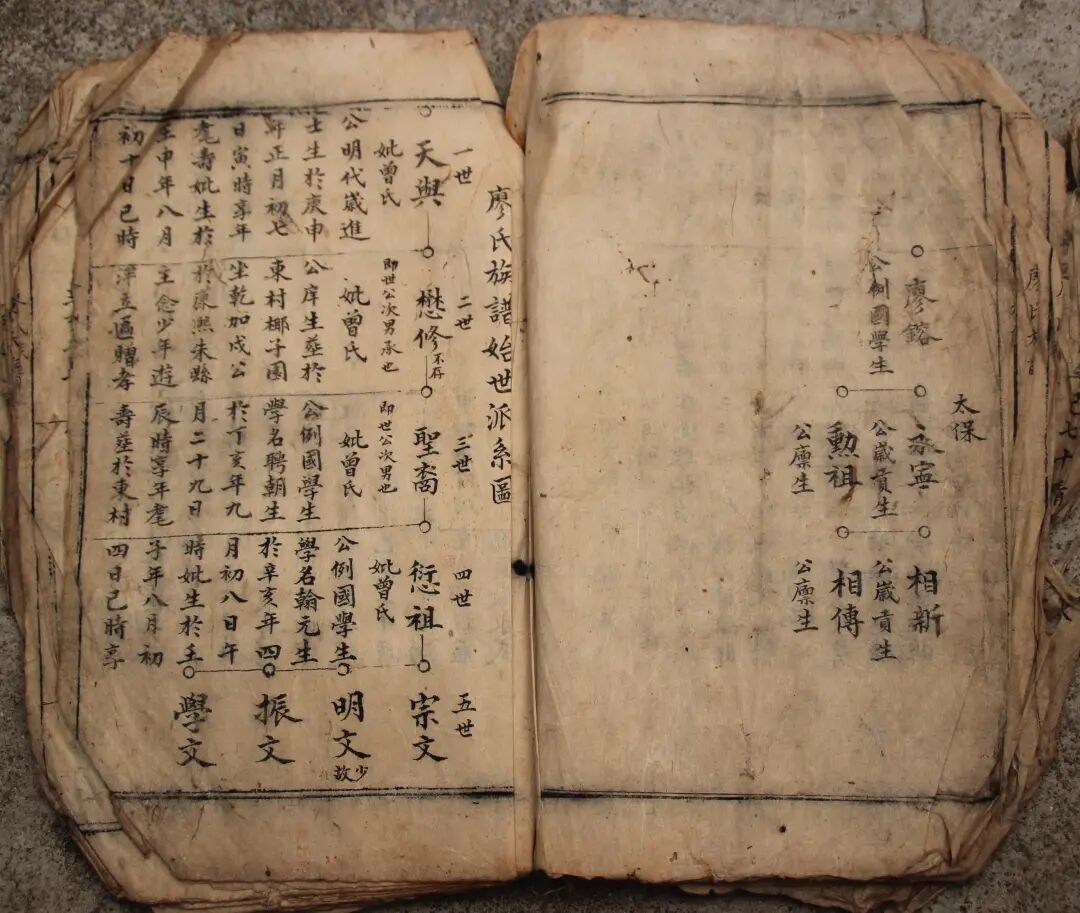 太保
廖鎔
公例國學生
永寧
公歲貢生
勳祖
公廩生
相新
公歲貢生
相傳
公廩生
廖氏族譜始世派系區
一世
天與
妣曾氏
公明代歲進
士生於庚申
年正月初七
日寅時享年
耄壽妣生於
壬申年八月
初十日巳時
二世
懋修
即世公次男承也
妣曾氏
公庠生塟於
東村椰子園
坐乾加戌公
於康熙朱縣
主念少年遊
泮立匾贈孝
三世
聖裔
即世公次男也
妣曾氏
公例國學生
學名聘朝生
於丁亥年九
月二十九日
辰時享年耄
壽塟於東村
四世
愆祖
妣曾氏
公例國學生
學名翰元生
於辛亥年四
月初八日午
時妣生於壬
子年八月初
四日巳時享
五世
宗文
明文
少故
振文
學文